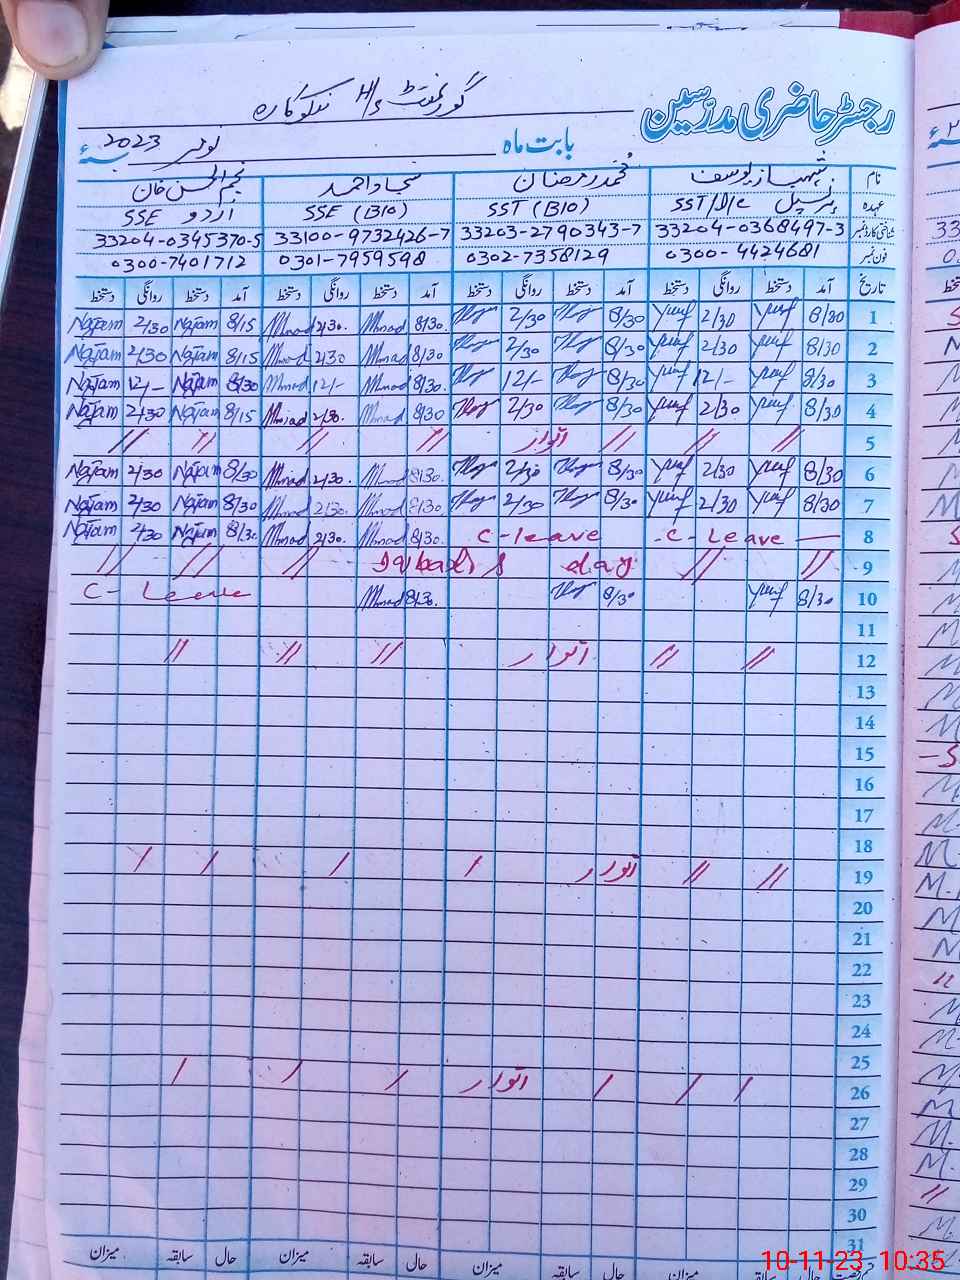 رجسٹر حاضری مدرسین گورنمنٹ H/S
بابت ماہ نومبر 2023ء
نام شہباز یوسف محمد رمضان سجاد احمد نجم الحسن خان
عہدہ پرنسپل SST/I/c SST (BIO) SSE (BIO) SSE اردو
شناختی کارڈ نمبر 33204-0368497-3 33203-2790343-7 33100-9732426-7 33204-0345370-5
فون نمبر 0300-4424681 0302-7358129 0301-7959598 0300-7401712
تاریخ آمد دستخط روانگی دستخط آمد دستخط روانگی دستخط آمد دستخط روانگی دستخط آمد دستخط روانگی دستخط
1 8/30 Yusuf 2/30 Yusuf 8/30 2/30 8/30 Ahmad 2/30 Ahmad 8/15 Najam 2/30 Najam
2 8/30 Yusuf 2/30 Yusuf 8/30 2/30 8/30 Ahmad 2/30 Ahmad 8/15 Najam 2/30 Najam
3 8/30 Yusuf 12/- Yusuf 8/30 12/- 8/30 Ahmad 12/- Ahmad 8/30 Najam 12/- Najam
4 8/30 Yusuf 2/30 Yusuf 8/30 2/30 8/30 Ahmad 2/30 Ahmad 8/15 Najam 2/30 Najam
5 // // // اتوار // // // //
6 8/30 Yusuf 2/30 Yusuf 8/30 2/30 8/30 Ahmad 2/30 Ahmad 8/30 Najam 2/30 Najam
7 8/30 Yusuf 2/30 Yusuf 8/30 2/30 8/30 Ahmad 2/30 Ahmad 8/30 Najam 2/30 Najam
8 C-Leave C-leave 8/30 Ahmad 2/30 Ahmad 8/30 Najam 2/30 Najam
9 // // Iqbal's day // // //
10 8/30 Yusuf 8/30 8/30 Ahmad C-Leave
11
12 // // اتوار // // //
13
14
15
16
17
18
19 // // اتوار / / / /
20
21
22
23
24
25
26 / / / اتوار / / /
27
28
29
30
31
حال سابقہ میزان حال سابقہ میزان حال سابقہ میزان
10-11-23 10:35